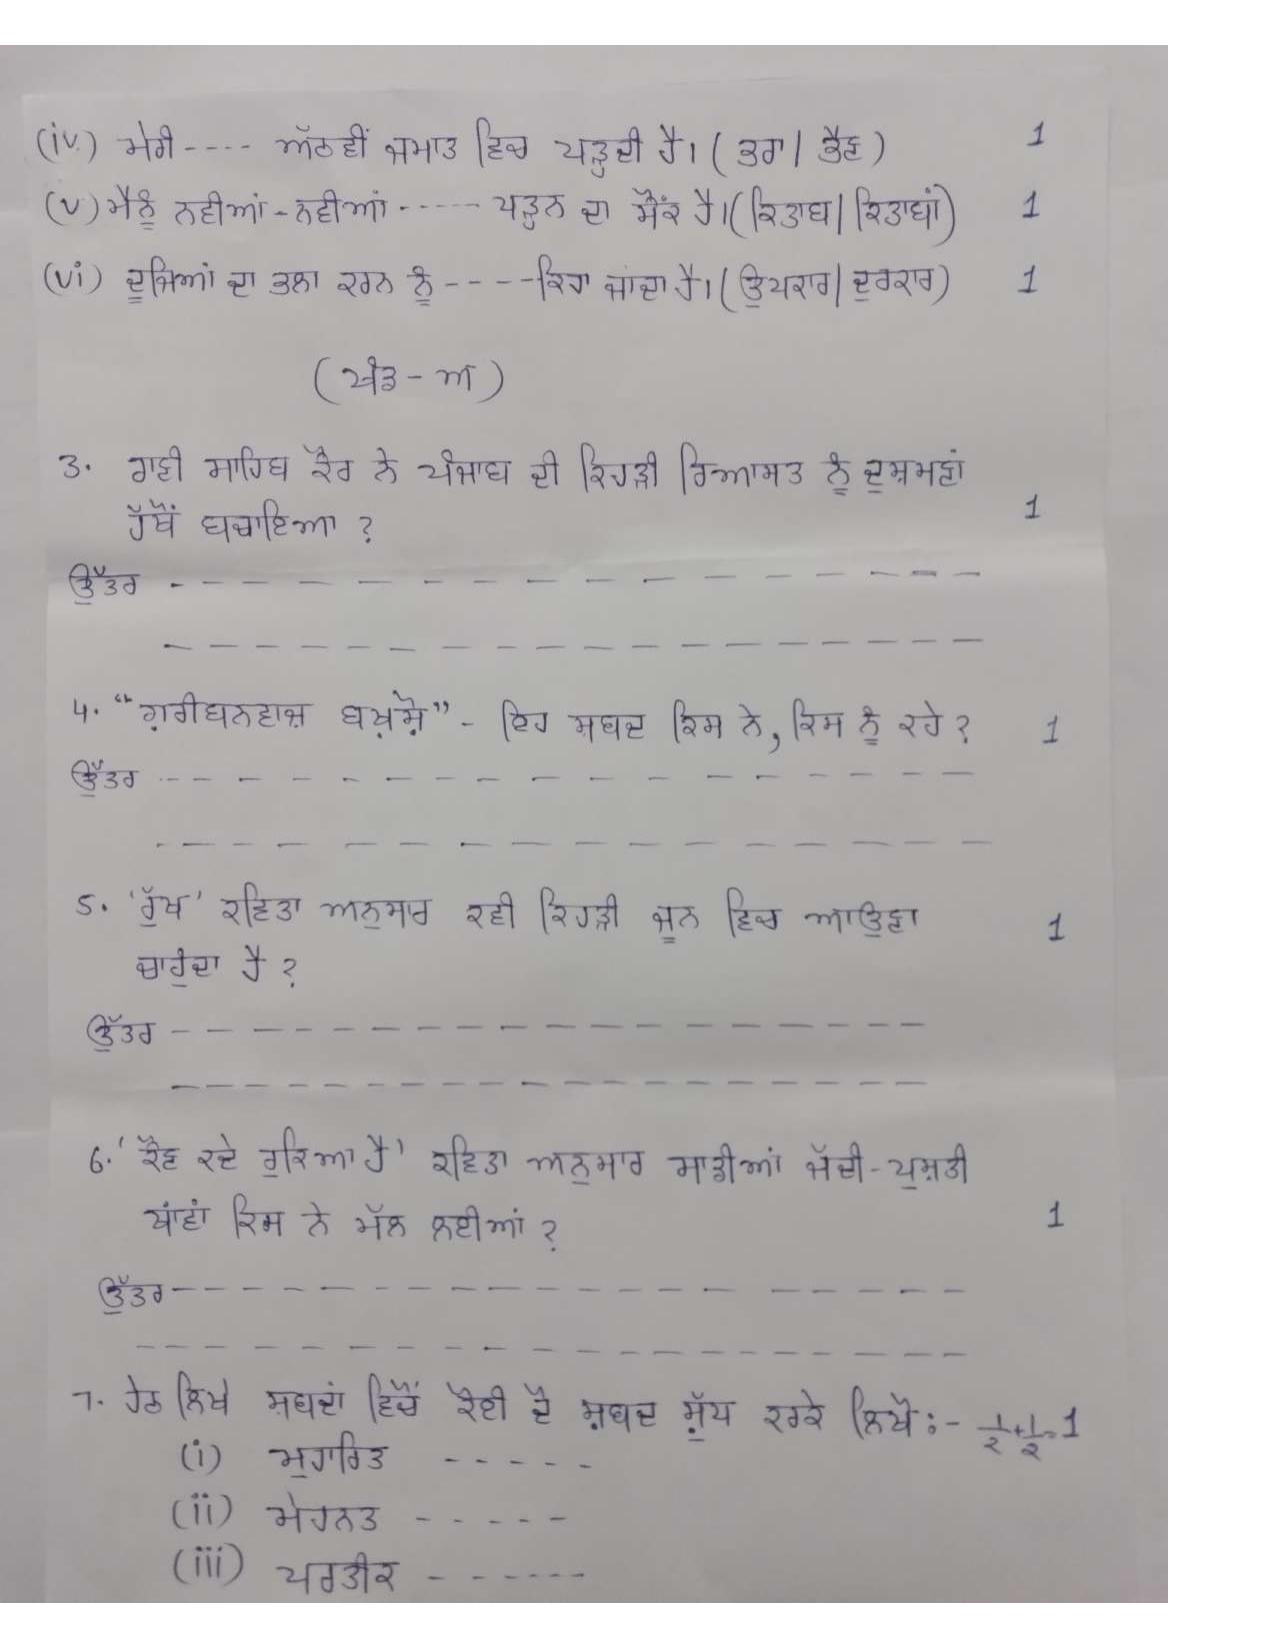 (iv) ਮੇਰੀ ---- ਅੱਠਵੀਂ ਜਮਾਤ ਵਿਚ ਪੜ੍ਹਦੀ ਹੈ। ( ਭਰਾ / ਭੈਣ ) 1
(v) ਮੈਨੂੰ ਨਵੀਆਂ - ਨਵੀਆਂ ----- ਪੜ੍ਹਨ ਦਾ ਸ਼ੌਂਕ ਹੈ। (ਕਿਤਾਬ / ਕਿਤਾਬਾਂ) 1
(vi) ਦੂਜਿਆਂ ਦਾ ਭਲਾ ਕਰਨ ਨੂੰ ----- ਕਿਹਾ ਜਾਂਦਾ ਹੈ। ( ਉਪਕਾਰ / ਦੁਰਕਾਰ ) 1
(ਖੰਡ - ਅ)
3. ਰਾਣੀ ਸਾਹਿਬ ਕੌਰ ਨੇ ਪੰਜਾਬ ਦੀ ਕਿਹੜੀ ਰਿਆਸਤ ਨੂੰ ਦੁਸ਼ਮਣਾਂ
ਹੱਥੋਂ ਬਚਾਇਆ ? 1
ਉੱਤਰ - - - - - - - - - - - - - - - -
- - - - - - - - - - - - - - - - - -
4. “ਗ਼ਰੀਬਨਵਾਜ਼ ਬਖ਼ਸ਼ੋ” - ਇਹ ਸ਼ਬਦ ਕਿਸ ਨੇ, ਕਿਸ ਨੂੰ ਕਹੇ ? 1
ਉੱਤਰ - - - - - - - - - - - - - - - -
- - - - - - - - - - - - - - - - - -
5. ‘ਰੁੱਖ’ ਕਵਿਤਾ ਅਨੁਸਾਰ ਕਵੀ ਕਿਹੜੀ ਜੂਨ ਵਿਚ ਆਉਣਾ 1
ਚਾਹੁੰਦਾ ਹੈ ?
ਉੱਤਰ - - - - - - - - - - - - - - - - - -
- - - - - - - - - - - - - - - - - -
6. ‘ਕੌਣ ਕਦੇ ਰੁਕਿਆ ਹੈ’ ਕਵਿਤਾ ਅਨੁਸਾਰ ਸਾਡੀਆਂ ਜੱਦੀ - ਪੁਸ਼ਤੀ
ਥਾਂਵਾਂ ਕਿਸ ਨੇ ਮੱਲ ਲਈਆਂ ? 1
ਉੱਤਰ - - - - - - - - - - - - - - - - - -
- - - - - - - - - - - - - - - - - -
7. ਹੇਠ ਲਿਖੇ ਸ਼ਬਦਾਂ ਵਿਚੋਂ ਕੋਈ ਦੋ ਸ਼ਬਦ ਸ਼ੁੱਧ ਕਰਕੇ ਲਿਖੋ :- 1/2+1/2=1
(i) ਮੁਹਾਰਿਤ - - - - -
(ii) ਮੇਹਨਤ - - - - -
(iii) ਪਰਤੀਕ - - - - - -